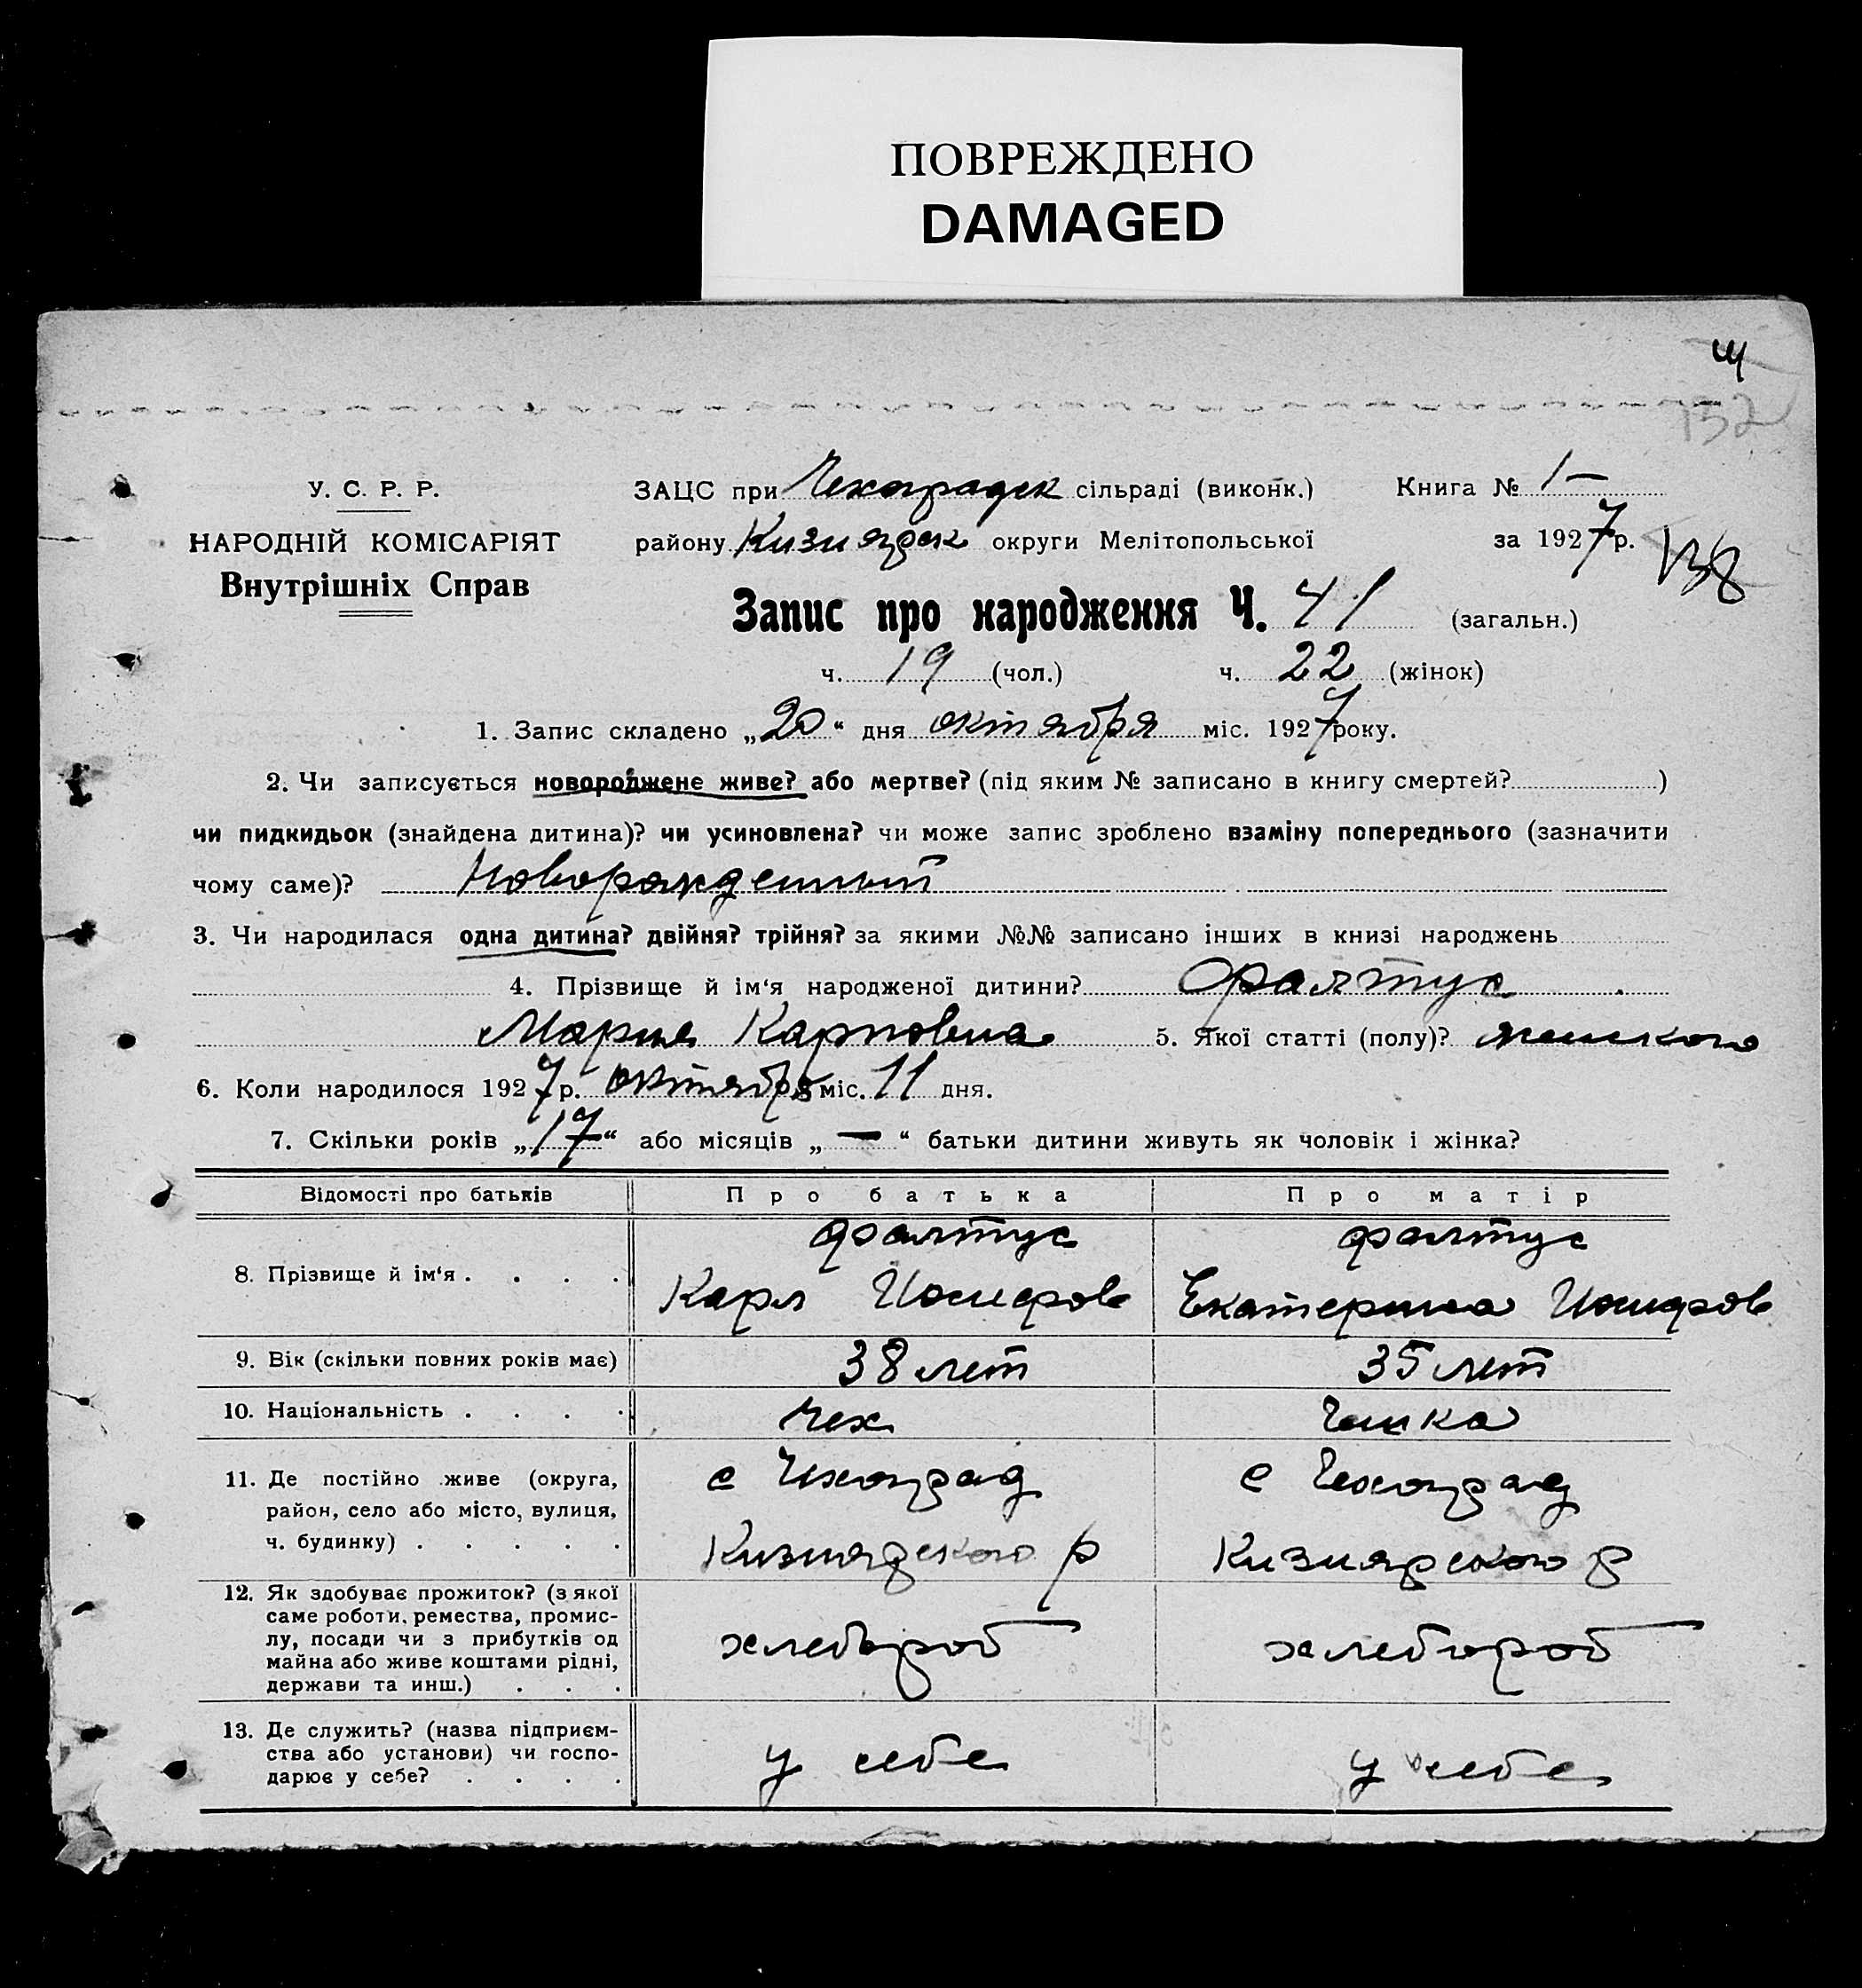 ПОВРЕЖДЕНО
DAMAGED
132
У. С. Р. Р.
НАРОДНІЙ КОМІСАРІЯТ
Внутрішніх Справ
ЗАЦС при Чехоградск сільраді (виконк.) Книга № 1-
району Кизиярск округи Мелітопольської за 1927 р.
138
Запис про народження Ч. 41 (загальн.)
ч. 19 (чол.) ч. 22 (жінок)
1. Запис складено „20“ дня октября міс. 1927 року.
2. Чи записується новороджене живе? або мертве? (під яким № записано в книгу смертей? )
чи пидкидьок (знайдена дитина)? чи усиновлена? чи може запис зроблено взаміну попереднього (зазначити
чому саме)? Новорожденный
3. Чи народилася одна дитина? двійня? трійня? за якими №№ записано інших в книзі народжень
4. Прізвище й ім‘я народженої дитини? Фалтус
Мария Карловна 5. Якої статті (полу)? женского
6. Коли народилося 1927 р. октября міс. 11 дня.
7. Скільки років „17“ або місяців „—“ батьки дитини живуть як чоловік і жінка?
Відомості про батьків Про батька Про матір
8. Прізвище й ім‘я . . . . Фалтус Фалтус
Карл Иосифов Екатерина Иосифов
9. Вік (скільки повних років має) 38 лет 35 лет
10. Національність . . . . Чех Чешка
11. Де постійно живе (округа, район, село або місто, вулиця, ч. будинку) . . . . . с Чехоград с Чехоград
Кизиярского р Кизиярского р
12. Як здобуває прожиток? (з якої
саме роботи, ремества, промис-
лу, посади чи з прибутків од
майна або живе коштами рідні,
держави та инш.) . . . хлебороб хлебороб
13. Де служить? (назва підприєм-
ства або установи) чи госпо-
дарює у себе? . . . . у себе у себе